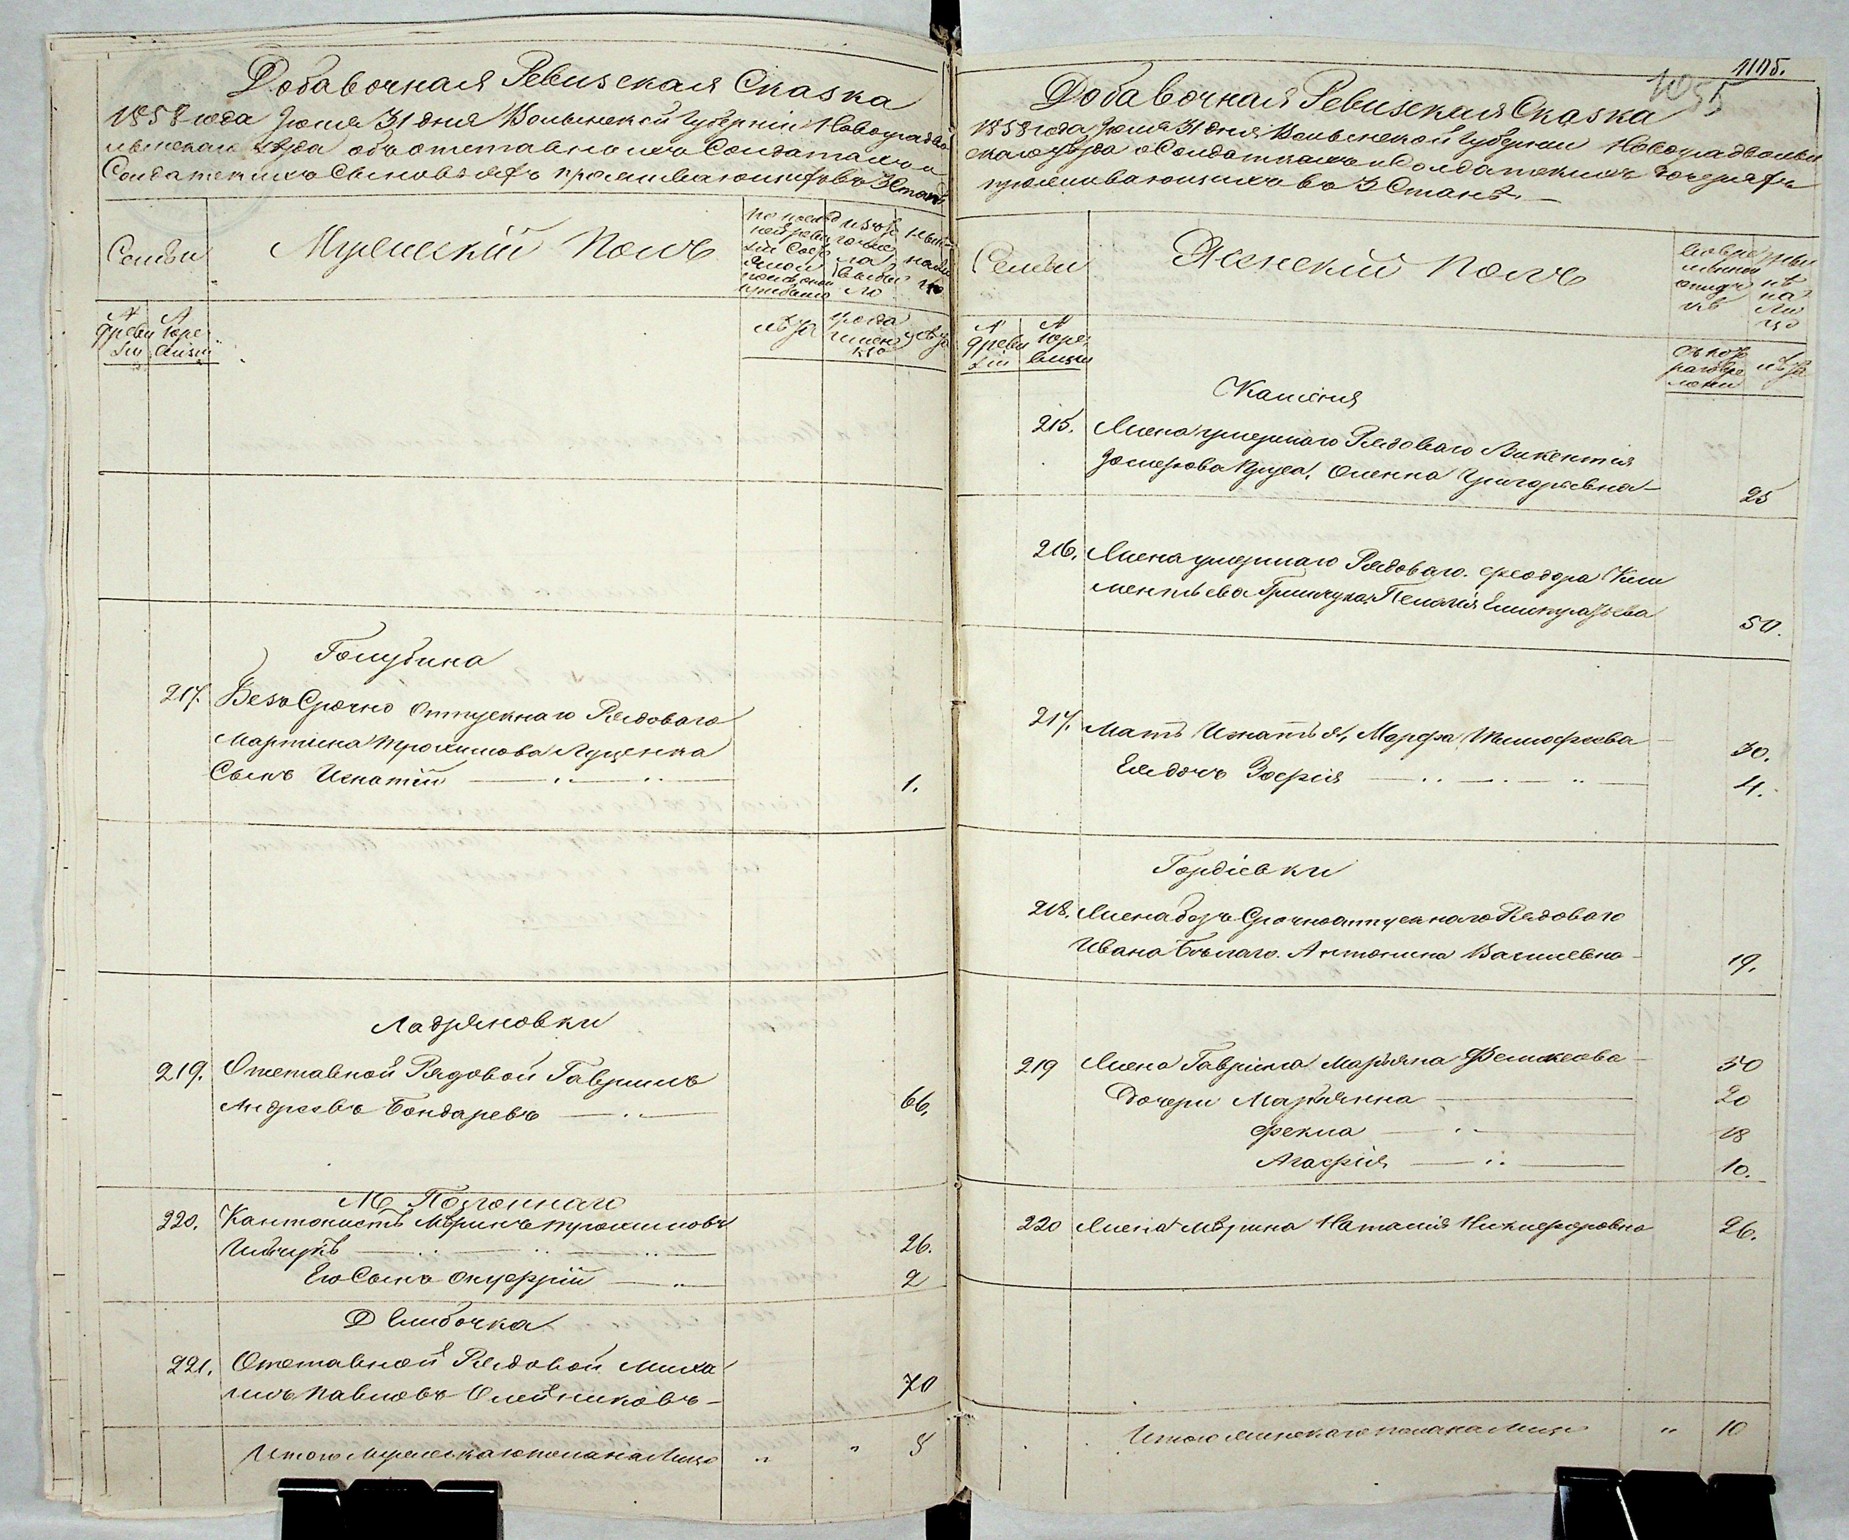 Добавочная Ревизская Сказка
1858 года Июля 31 дня Волынской Губерніи Новоградво
лынскаго уѣзда объ отставныхъ Солдатахъ и
Солдатскихъ Сыновьяхъ проживающихъ въ 3 Станѣ
Семьи
Мужескій Полъ
№
№
лѣта
лѣта
Голубина
217. Безъ Срочно Отпускнаго Рядоваго
Мартина Трохимова Луценка
Сынъ Игнатій 1.
Ладзяновки
219. Отставной Рядовой Гаврилъ
Андреевъ Бондаревъ 66.
М. Полоннаго
220. Кантонистъ Мѣринъ Трохимовъ
26.
Его Сынъ Онуфрій 2
Д Глибочка
221. Отставной Рядовой Миха
илъ Павловъ Олейниковъ 70
Итого Мужескаго пола на Лицо " " 5
1105.
1055
Добавочная Ревизская Сказка
1858 года Июля 31 дня Волынской Губерніи Новоградволын
скаго уѣзда о Солдаткахъ и Солдатскихъ дочеряхъ
проживающихъ въ 3 Станѣ
Семьи
Женскій Полъ
№
№
лѣта
Каменя
215. Жена умершаго Рядоваго Викентія
Олена Григорьевна 25
216. Жена умершаго Рядоваго Феодора Кли
ментьева Гринчука, Пелагія 50.
217. Мать Игнатья, Марфа Тимофеева 30.
Ея дочь Зофія 4.
Гордіевки
218. Жена безъ Срочноотпускнаго Рядоваго
Ивана Бѣлаго. Антонина Василевна 19.
219 Жена Гаврила Марьяна Феликсова 50
Дочери Марьянна 20
Фекла 18
Агафія 10.
220 Жена Мѣрина Наталія Никифоровна 26.
Итого женскаго пола на Лицо " 10